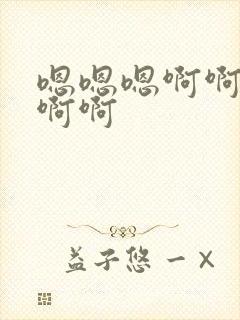 嗯嗯嗯啊啊
啊啊
益子悠一×